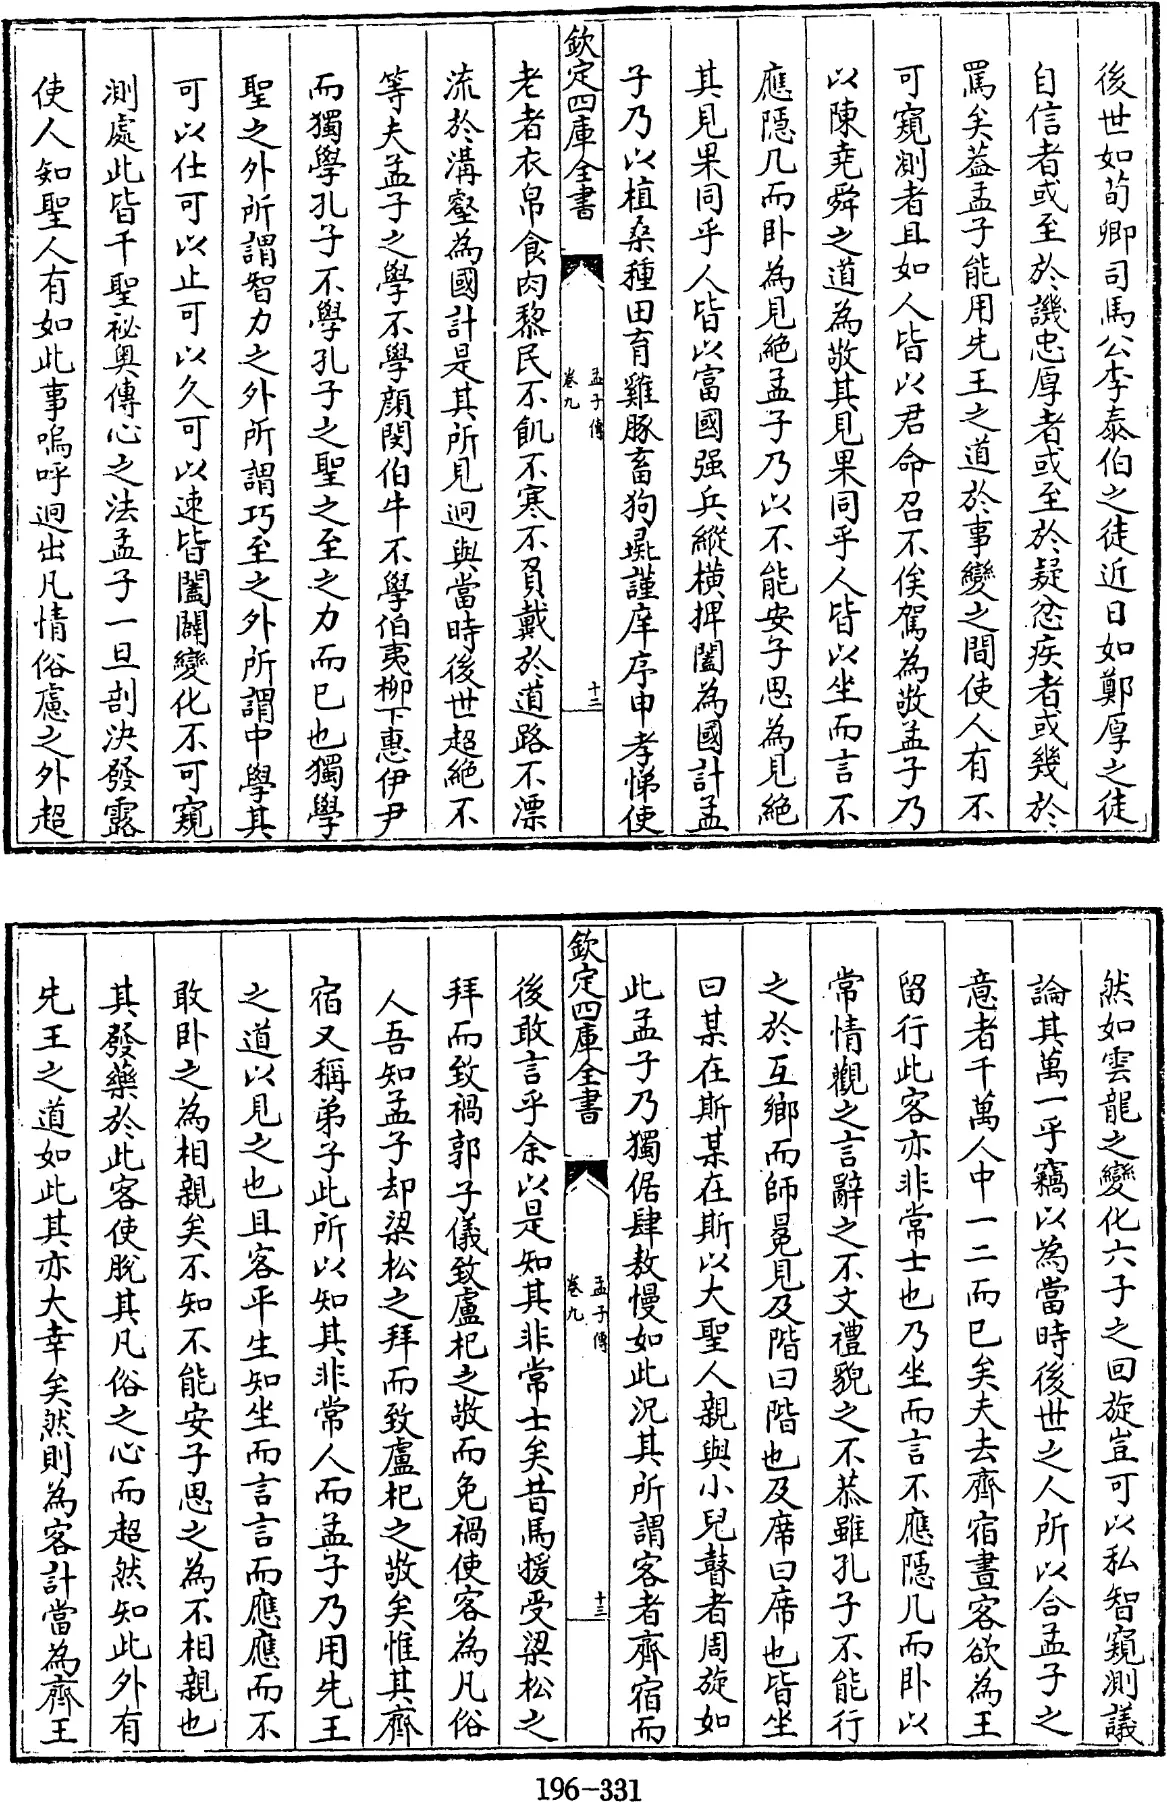 後世如荀卿司馬公李泰伯之徒近日如鄭厚之徒
自信者或至於譏忠厚者或至於疑忿疾者或幾於
罵矣葢孟子能用先王之道於事變之間使人有不
可窺測者且如人皆以君命召不俟駕為敬孟子乃
以陳堯舜之道為敬其見果同乎人皆以坐而言不
應隠几而卧為見絶孟子乃以不能安子思為見絶
其見果同乎人皆以富國强兵縱横捭闔為國計孟
子乃以植桑種田育雞豚畜狗彘謹庠序申孝悌使
欽定四庫全書
孟子傳
卷九
十三
老者衣帛食肉黎民不飢不寒不負戴於道路不漂
流於溝壑為國計是其所見迥與當時後世超絶不
等夫孟子之學不學顔閔伯牛不學伯夷柳下惠伊尹
而獨學孔子不學孔子之聖之至之力而已也獨學
聖之外所謂智力之外所謂巧至之外所謂中學其
可以仕可以止可以久可以速皆闔闢變化不可窺
測處此皆千聖祕奥傳心之法孟子一旦剖決發露
使人知聖人有如此事嗚呼迥出凡情俗慮之外超
然如雲龍之變化六子之回旋豈可以私智窺測議
論其萬一乎竊以為當時後世之人所以合孟子之
意者千萬人中一二而已矣夫去齊宿晝客欲為王
留行此客亦非常士也乃坐而言不應隠几而卧以
常情觀之言辭之不文禮貌之不恭雖孔子不能行
之於互鄉而師冕見及階曰階也及席曰席也皆坐
曰某在斯某在斯以大聖人親與小兒瞽者周旋如
此孟子乃獨倨肆敖慢如此况其所謂客者齊宿而
欽定四庫全書
孟子傳
卷九
十三
後敢言乎余以是知其非常士矣昔馬援受梁松之
拜而致禍郭子儀致盧杞之敬而免禍使客為凡俗
人吾知孟子却梁松之拜而致盧杞之敬矣惟其齊
宿又稱弟子此所以知其非常人而孟子乃用先王
之道以見之也且客平生知坐而言言而應應而不
敢卧之為相親矣不知不能安子思之為不相親也
其發藥於此客使脫其凡俗之心而超然知此外有
先王之道如此其亦大幸矣然則為客計當為齊王
196-331